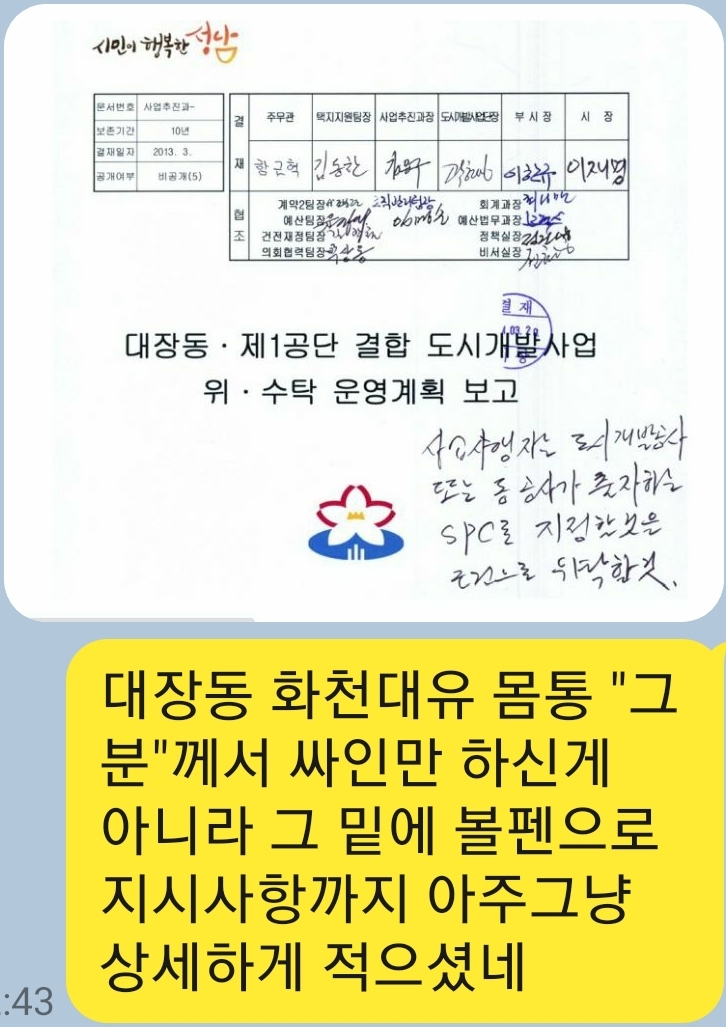 시민이 행복한 성남
문서번호 사업추진과-
보존기간 10년
결재일자 2013. 3.
공개여부 비공개(5)
결재
주무관 택지지원팀장 사업추진과장 도시개발사업단장 부시장 시 장
황근혁 김동한 이한규 이재명
협조
계약2팀장
예산팀장
건전재정팀장
의회협력팀장
회계과장
예산법무과장
정책실장
비서실장
결재
03. 2
대장동 · 제1공단 결합 도시개발사업
위 · 수탁 운영계획 보고
사업시행자는 도시개발공사
또는 동 공사가 출자하는
SPC로 지정할것을
조건으로 위탁할것.
대장동 화천대유 몸통 "그
분"께서 싸인만 하신게
아니라 그 밑에 볼펜으로
지시사항까지 아주그냥
상세하게 적으셨네
:43